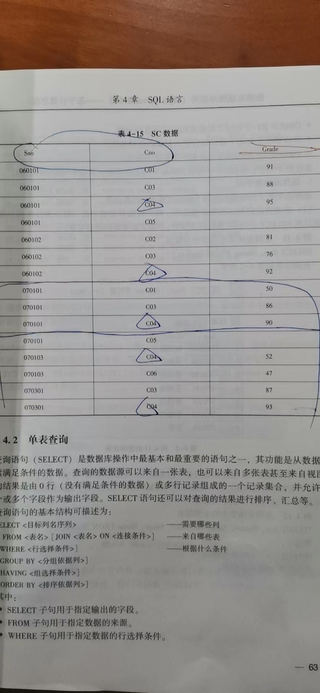 第 4 章 SQL 语言
表 4-15 SC 数据
Sno Cno Grade
060101 C01 91
060101 C03 88
060101 C04 95
060101 C05
060102 C02 81
060102 C03 76
060102 C04 92
070101 C01 50
070101 C03 86
070101 C04 90
070101 C05
070103 C04 52
070103 C06 47
070301 C03 87
070301 C04 93
4.2 单表查询
查询语句（SELECT）是数据库操作中最基本和最重要的语句之一，其功能是从数据
满足条件的数据。查询的数据源可以来自一张表，也可以来自多张表甚至来自视图
的结果是由 0 行（没有满足条件的数据）或多行记录组成的一个记录集合，并允许
个或多个字段作为输出字段。SELECT 语句还可以对查询的结果进行排序、汇总等。
查询语句的基本结构可描述为：
SELECT <目标列名序列> ——需要哪些列
FROM <表名> [JOIN <表名> ON <连接条件>] ——来自哪些表
WHERE <行选择条件>] ——根据什么条件
GROUP BY <分组依据列>]
HAVING <组选择条件>]
ORDER BY <排序依据列>]
其中：
• SELECT 子句用于指定输出的字段。
• FROM 子句用于指定数据的来源。
• WHERE 子句用于指定数据的行选择条件。
— 63